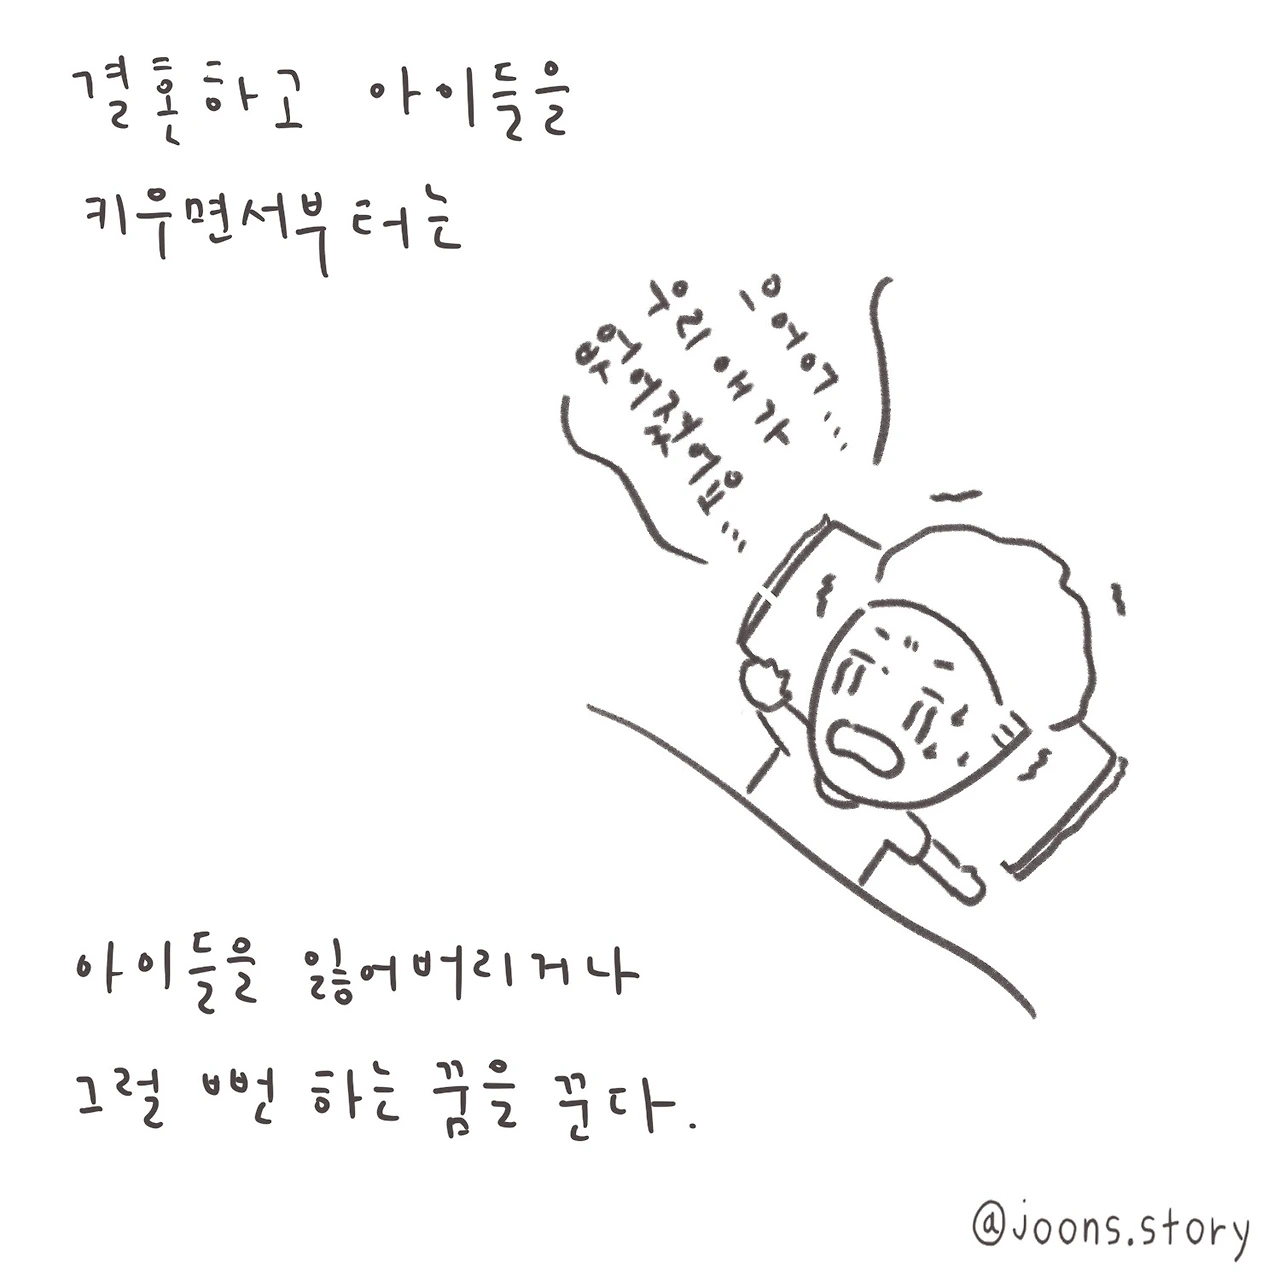 결혼하고 아이들을
키우면서부터는
으어어...
우리 애가
없어졌어요...
아이들을 잃어버리거나
그럴 뻔 하는 꿈을 꾼다.
@joons.story